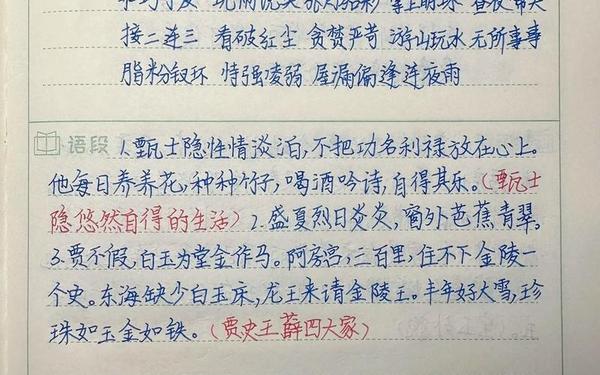 接二连三 看破红尘 贪婪严苛 游山玩水 无所事事
脂粉钗环 恃强凌弱 屋漏偏逢连夜雨
语段 1.甄士隐性情淡泊,不把功名利禄放在心上。
他每日养养花,种种竹子,喝酒吟诗,自得其乐。(甄士
隐悠然自得的生活) 2.盛夏烈日炎炎,窗外芭蕉青翠。
3.贾不假,白玉为堂金作马。阿房宫,三百里,住不下金陵一
个史。东海缺少白玉床,龙王来请金陵王。丰年好大雪,珍
珠如玉金如铁。(贾史王薛四大家)